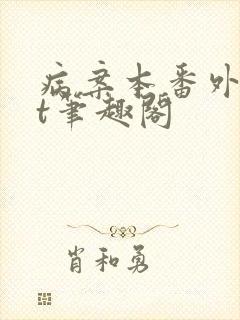 病案本番外
t笔趣阁
肖和勇